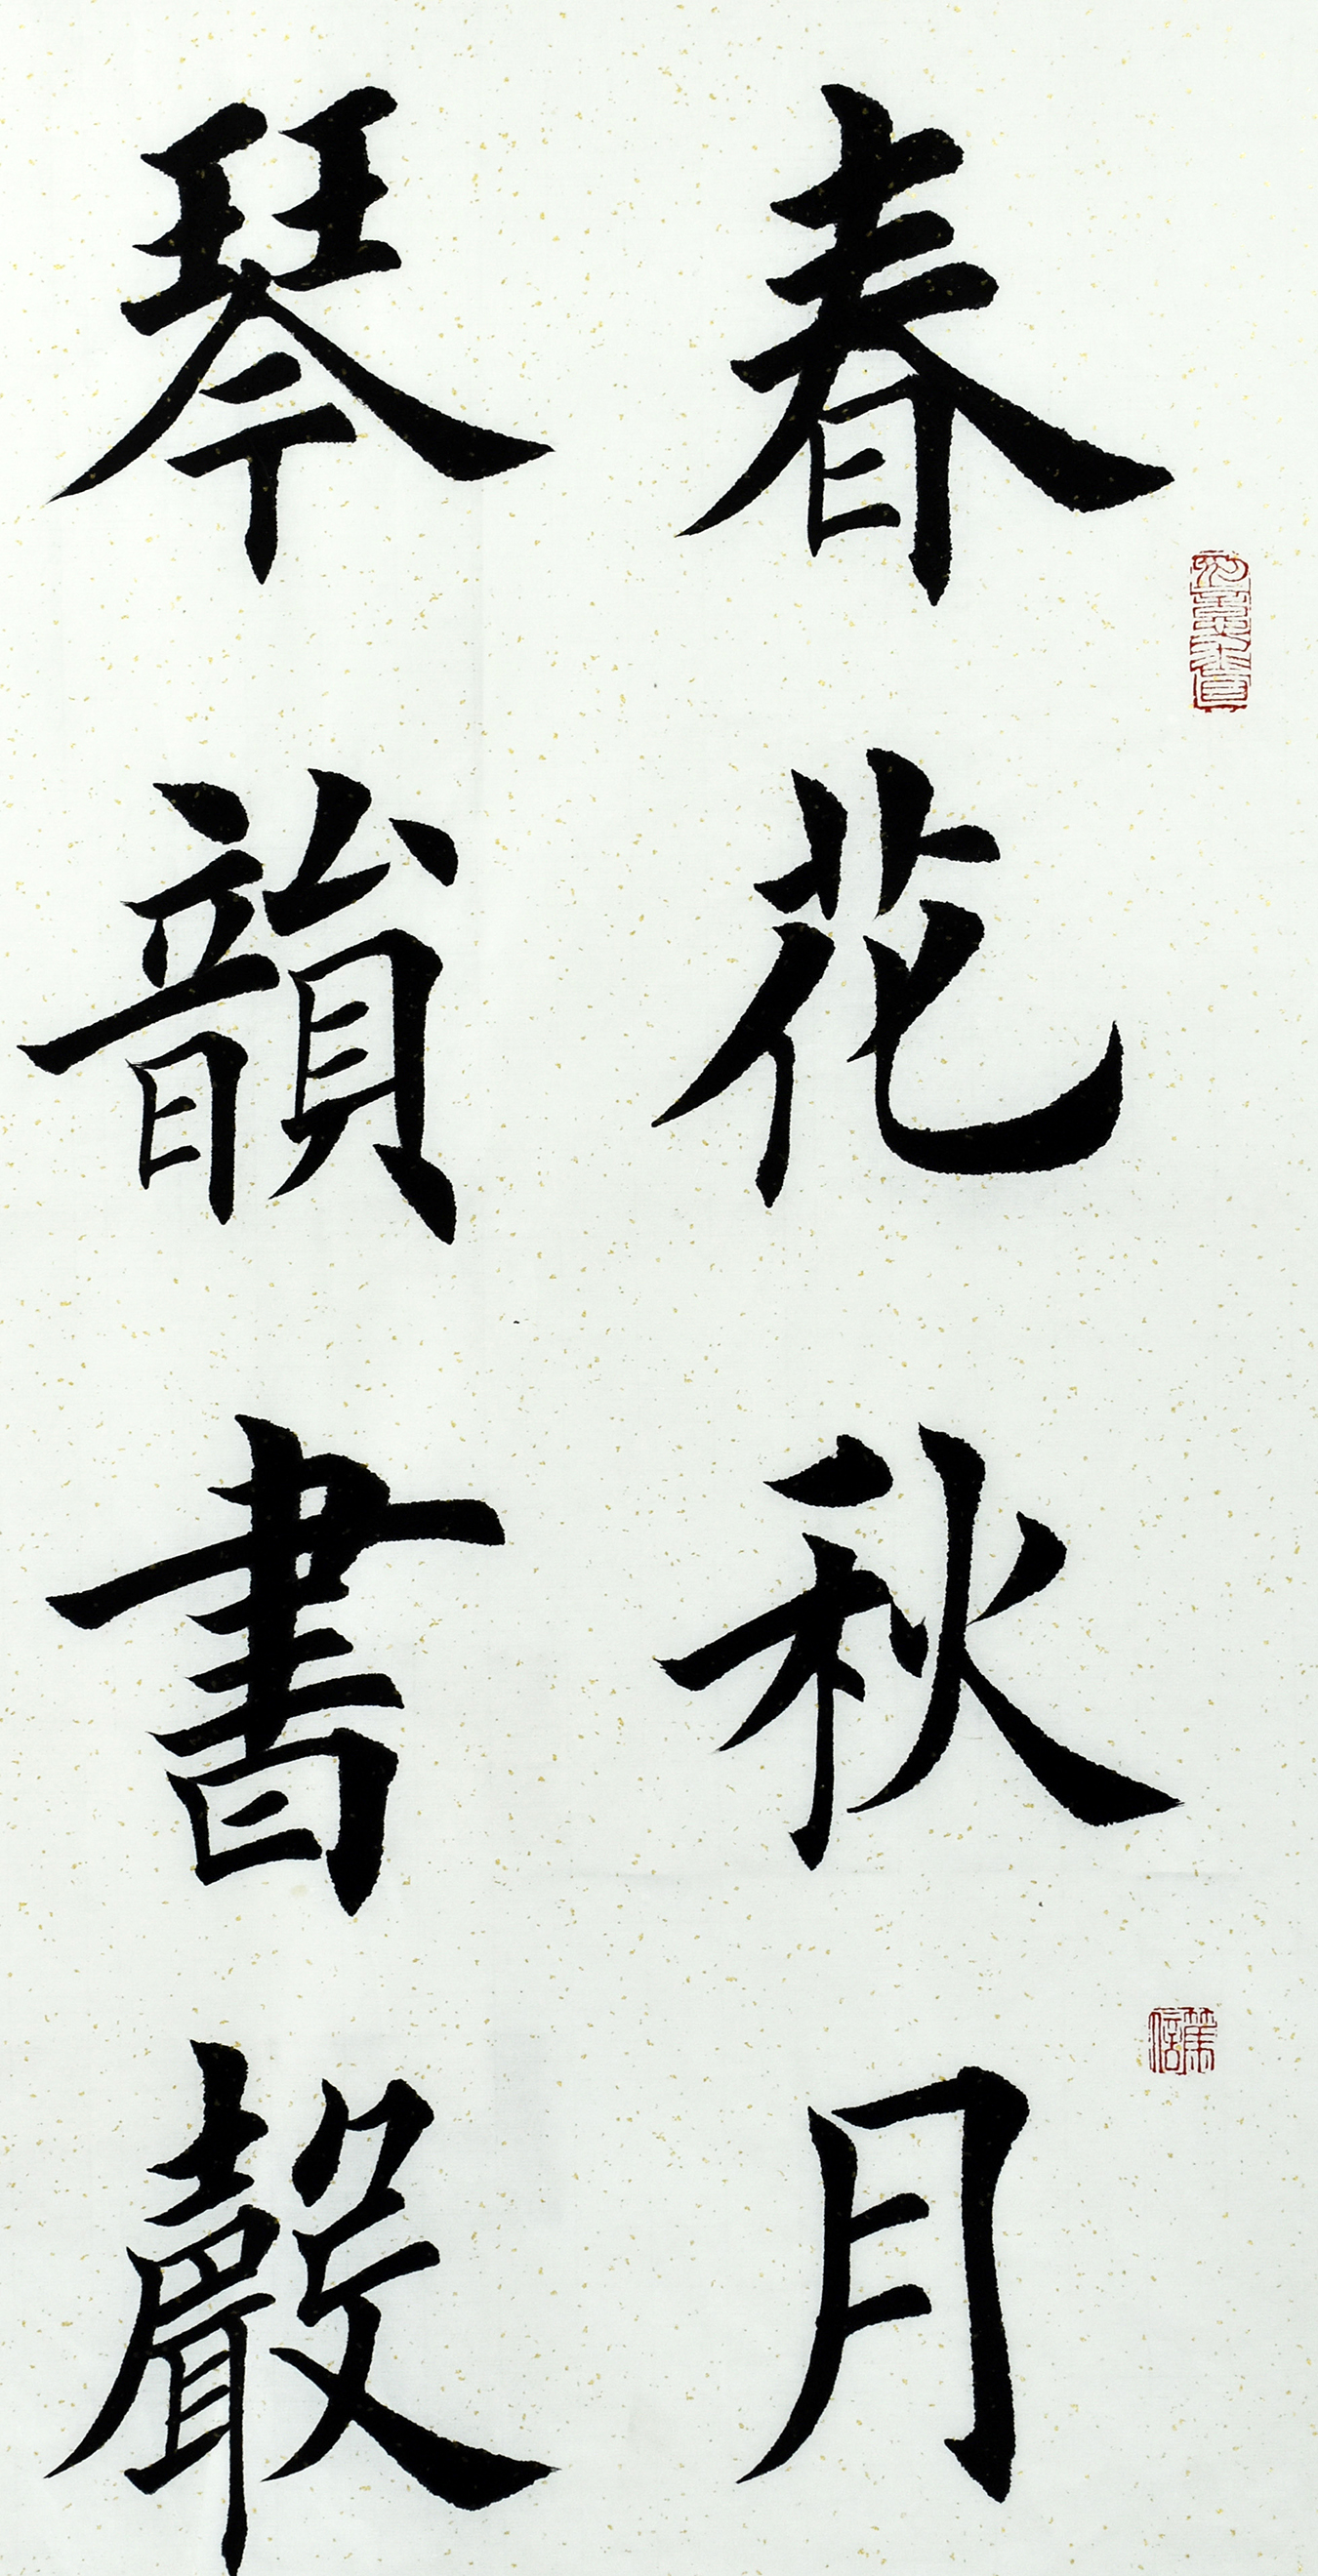 春花秋月
琴韻書聲